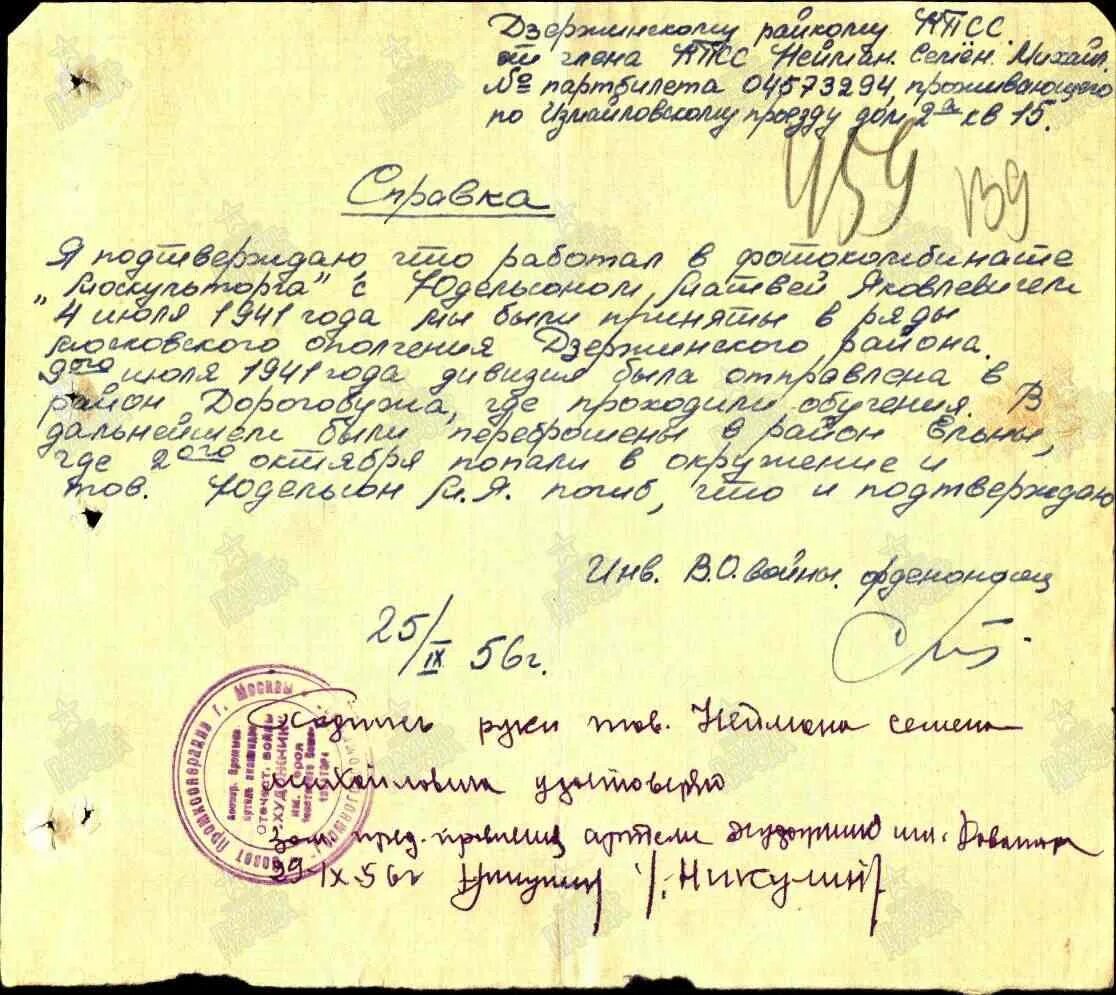 Дзержинскому райкому КПСС.
от члена КПСС Нейман. Семён. Михайл.
№ партбилета 04573294, проживающего
по Измайловскому проезду дом 2а кв 15.
459 139
Справка
Я подтверждаю что работал в фотокомбинате
"Москульторга" с Юдельсоном, Матвей Яковлевичем
4 июля 1941 года мы были приняты в ряды
московского ополчения Дзержинского района.
9ого июля 1941 года дивизия была отправлена в
район Дорогобужа, где проходили обучения. В
дальнейшем были переброшены в район Ельни,
где 2ого октября попали в окружение и
тов. Юдельсон М.Я. погиб, что и подтверждаю
Инв. В.О. войны. орденоносец
25/IX 56г.
Подпись руки тов. Неймана Семена
Михайловича удостоверяю
Зам. пред. правления артели Художник им.
29 IX-56г /Никулин/
Промкооперации г. Москвы
Отечест. войны
ХУДОЖНИК